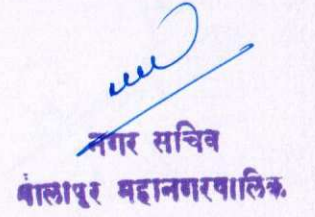 नगर सचिव
सोलापुर महानगरपालिक.